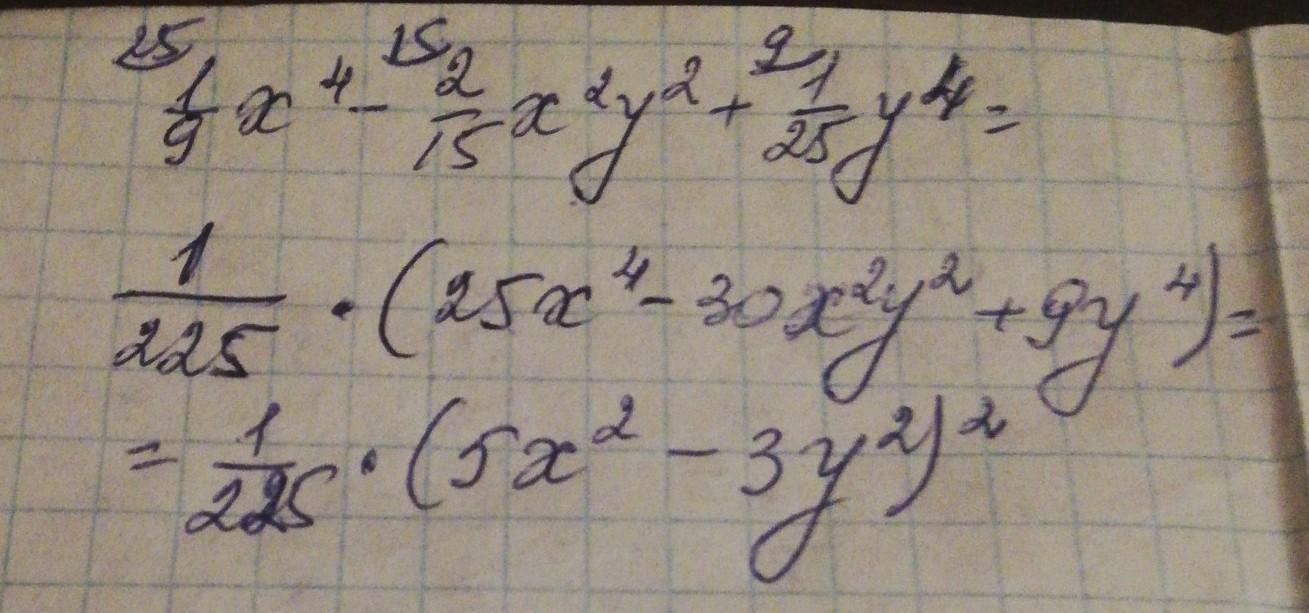 25 15 9
1/9 x⁴ - 2/15 x²y² + 1/25 y⁴ =
1/225 · (25x⁴ - 30x²y² + 9y⁴) =
= 1/225 · (5x² - 3y²)²